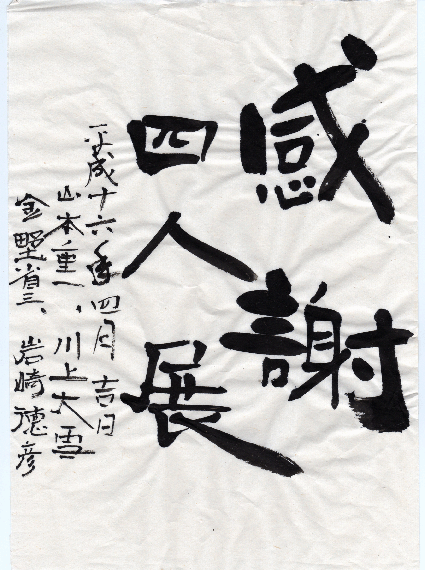 感謝
四人展
平成十六年四月吉日
山本重一、川上大雪
金野省三、岩崎徳彦